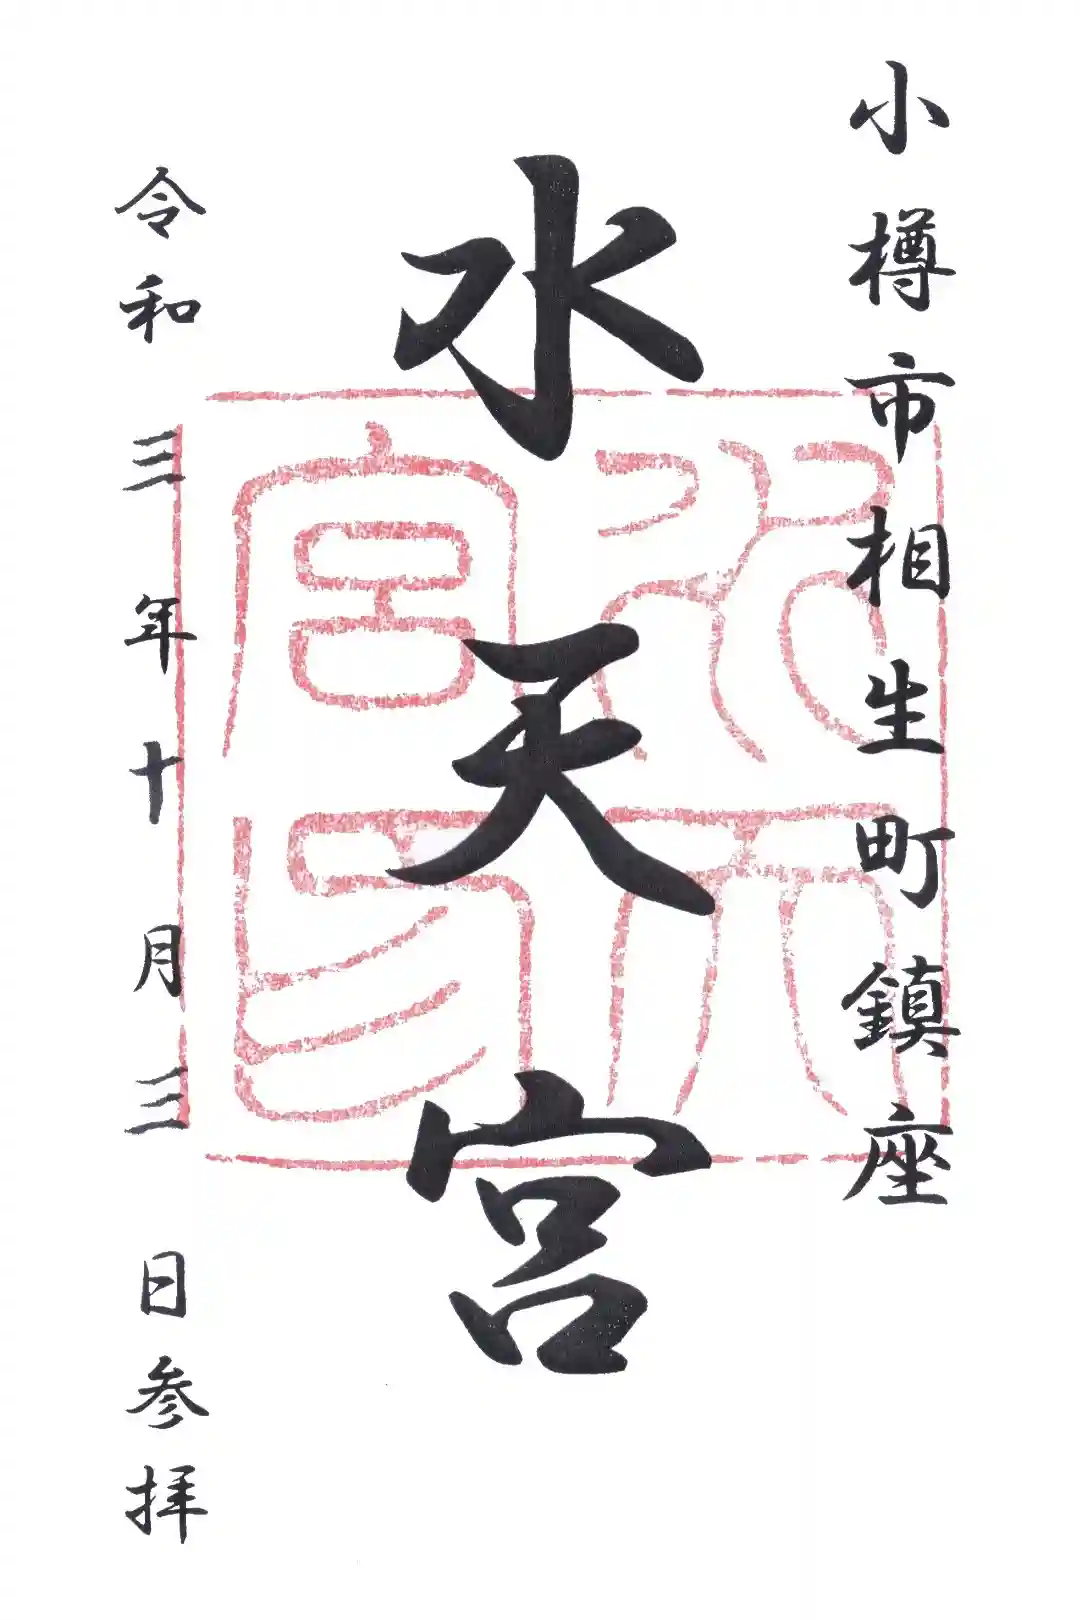 小樽市相生町鎮座
水天宮
水天宮印
令和三年十月三日参拝